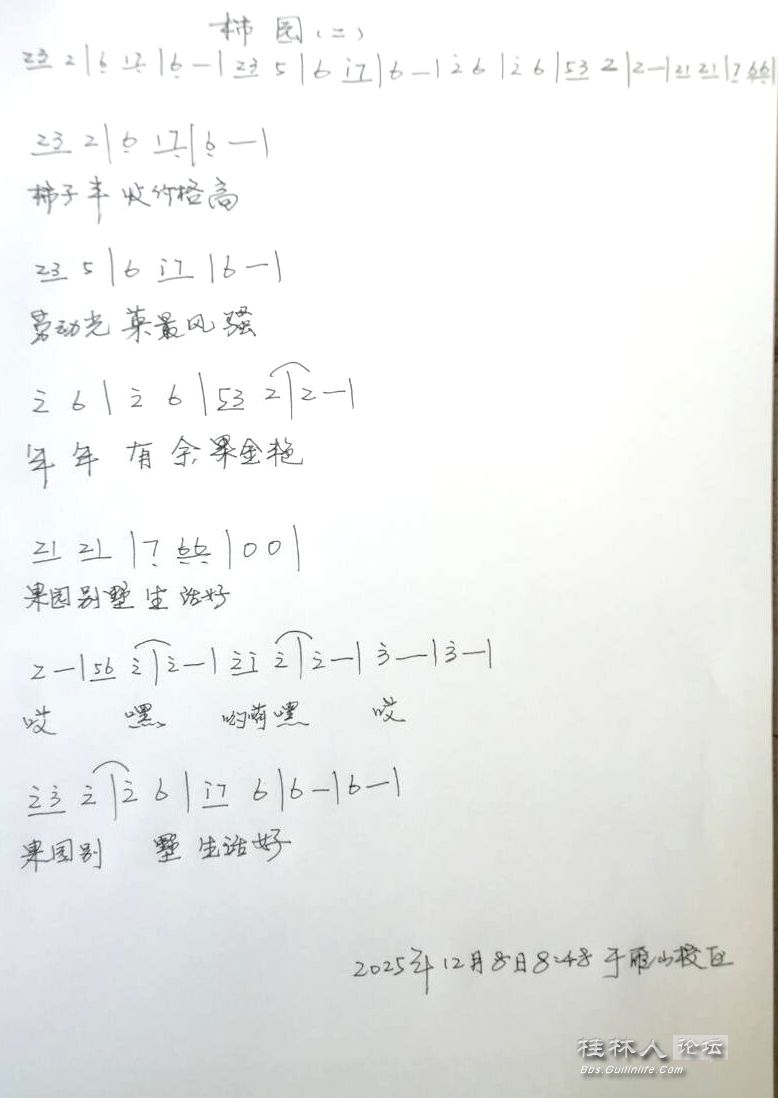 柿园（二）
23 2 | 6 17 | 6 — | 23 5 | 6 i7 | 6 — | 2̇ 6 | 2̇ 6 | 53 2 | 2 — | 21 21 | 7̣ 6̣6̣ |
23 2 | 6̣ 17̣ | 6̣ — |
柿子丰收价格高
23 5 | 6 i7 | 6 — |
劳动光荣最风骚
2̇ 6 | 2̇ 6 | 53 2 | 2 — |
年年有余果金艳
21 21 | 7̣ 6̣6̣ | 0 0 |
果园别墅生活好
2 — | 56 2̇ | 2̇ — | 2̇i 2̇ | 2̇ — | 3̇ — | 3̇ — |
哎 嘿 哟荷嘿 哎
2̇3̇ 2̇ | 2̇ 6 | i7 6 | 6 — | 6 — |
果园别 墅生活好
2025年12月8日8:48于雁山校区
桂林人论坛
Bbs.Guilinlife.Com